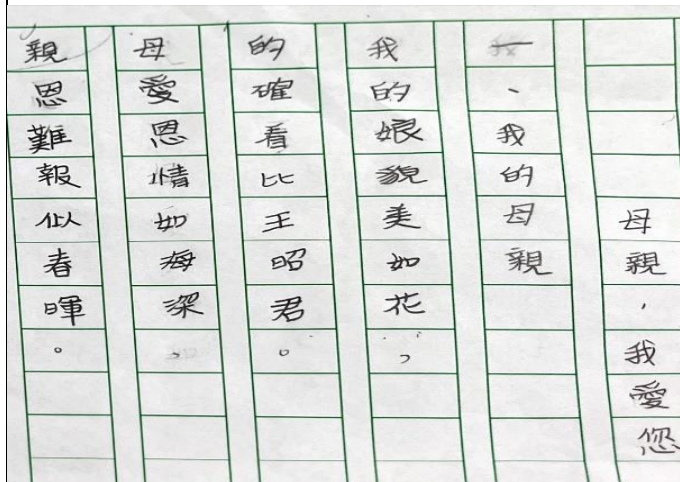 母親，我愛您
一、我的母親
我的娘貌美如花，
的確看比王昭君。
母愛恩情如海深、
親恩難報似春暉。